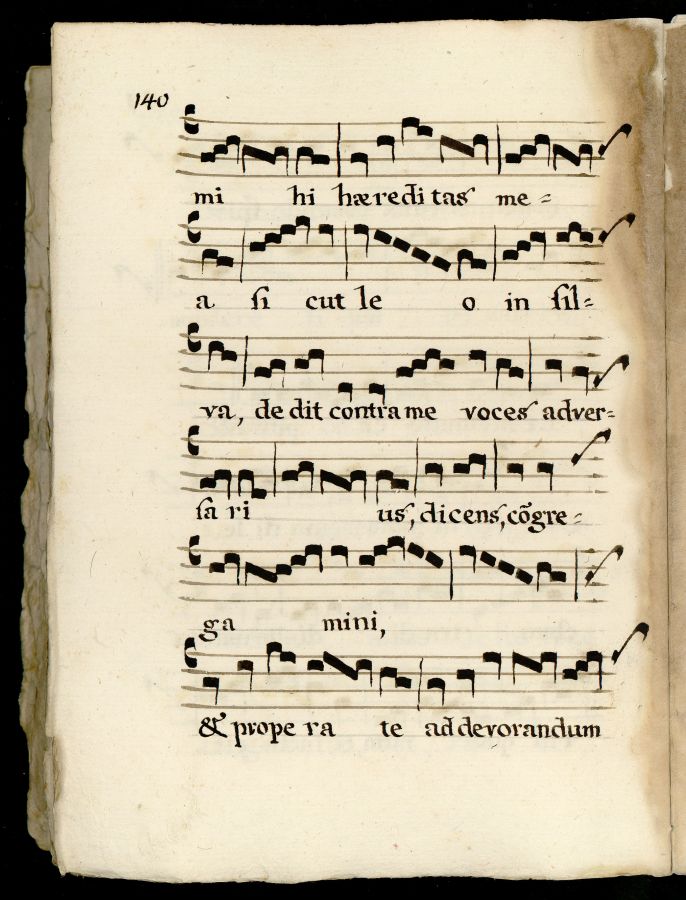 140
mi hi hæredi tas me =
a ſi cut le o in ſil=
va, de dit contra me voces adver=
ſa ri us, dicens, cõgre =
ga mini,
& prope ra te ad devorandum